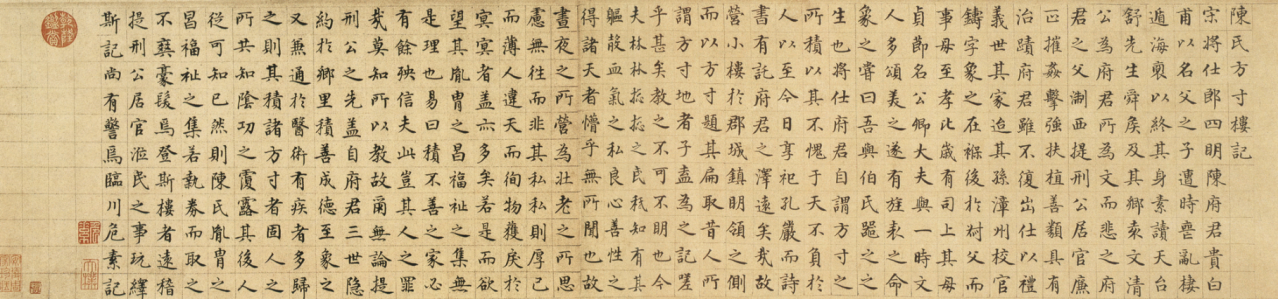 陳氏方寸樓記
宋將仕郎四明陳府君貴白
甫以名父之子遭時喪亂棲
遁海裔以終其身素讀天台
舒先生舜矦及其鄉袁文清
公為府君所為文而悲之府
君之父淛西提刑公居官廉
正摧姦擊強扶植善類具有
治蹟府君雖不復出仕以禮
義世其家迨其孫漳州校官
鑄字象之在褓後於父而
事母至孝比歲有司上其母
貞節名公卿大夫與一時文
人多頌美之遂有旌表之命
象之嘗曰吾與伯氏之之
生也將仕府君自謂方寸之
所積以其不愧于天不負於
人以至今日享祀孔嚴而詩
書有託府君之澤遠矣哉故
營小樓於郡城鎮明領之側
而以方寸題其扁取昔人所
謂方寸地者子盍為之記嗟
乎甚矣教之不可不明也今
夫林林惷惷之民秖知有其
軀殼血氣之私良心善性之
得諸天者懵乎無所聞也故
晝夜之所營為壯老之所思
慮無往而非其私私則厚己
而薄人違天而徇物獲戾於
冥冥者蓋亦多矣若是而欲
望其胤胄之昌福祉之集無
是理也易曰積不善之家必
有餘殃信夫此豈其人之罪
哉莫知所以教故爾無論提
刑公之先蓋自府君三世隱
約於鄉里積善成德至象之
又兼通於醫術有疾者多歸
之則其積諸方寸者固人人
所共知陰功之覆露其後人
從可知已然則陳氏胤胄之
昌福祉之集若執券而取之
不爽豪髮焉登斯樓者遠稽
提刑公居官涖民之事玩繹
斯記尚有警焉臨川危素記